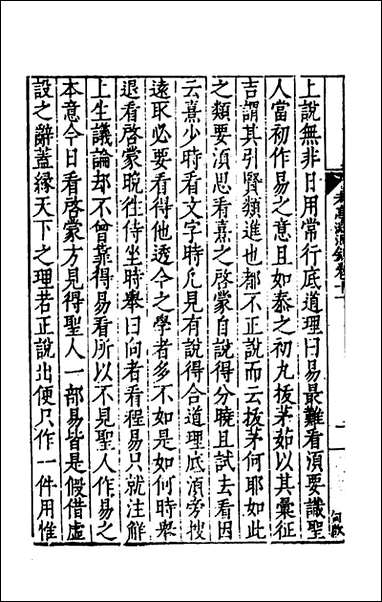 上說無非日用常行底道理曰易最難看須要識聖
人當初作易之意且如泰之初九拔茅茹以其彙征
吉謂其引賢類進也都不正說而云拔茅何耶如此
之類要須思看熹之啓蒙自說得分曉且試去看因
云熹少時看文字時凡見有說得合道理底須旁搜
遠取必要看得他透今之學者多不如是如何時舉
退看啓蒙晩徃侍坐時舉曰向者看程易只就注解
上生議論却不曾靠得易看所以不見聖人作易之
本意今日看啓蒙方見得聖人一部易皆是假借虛
設之辭蓋縁天下之理若正說出便只作一件用惟